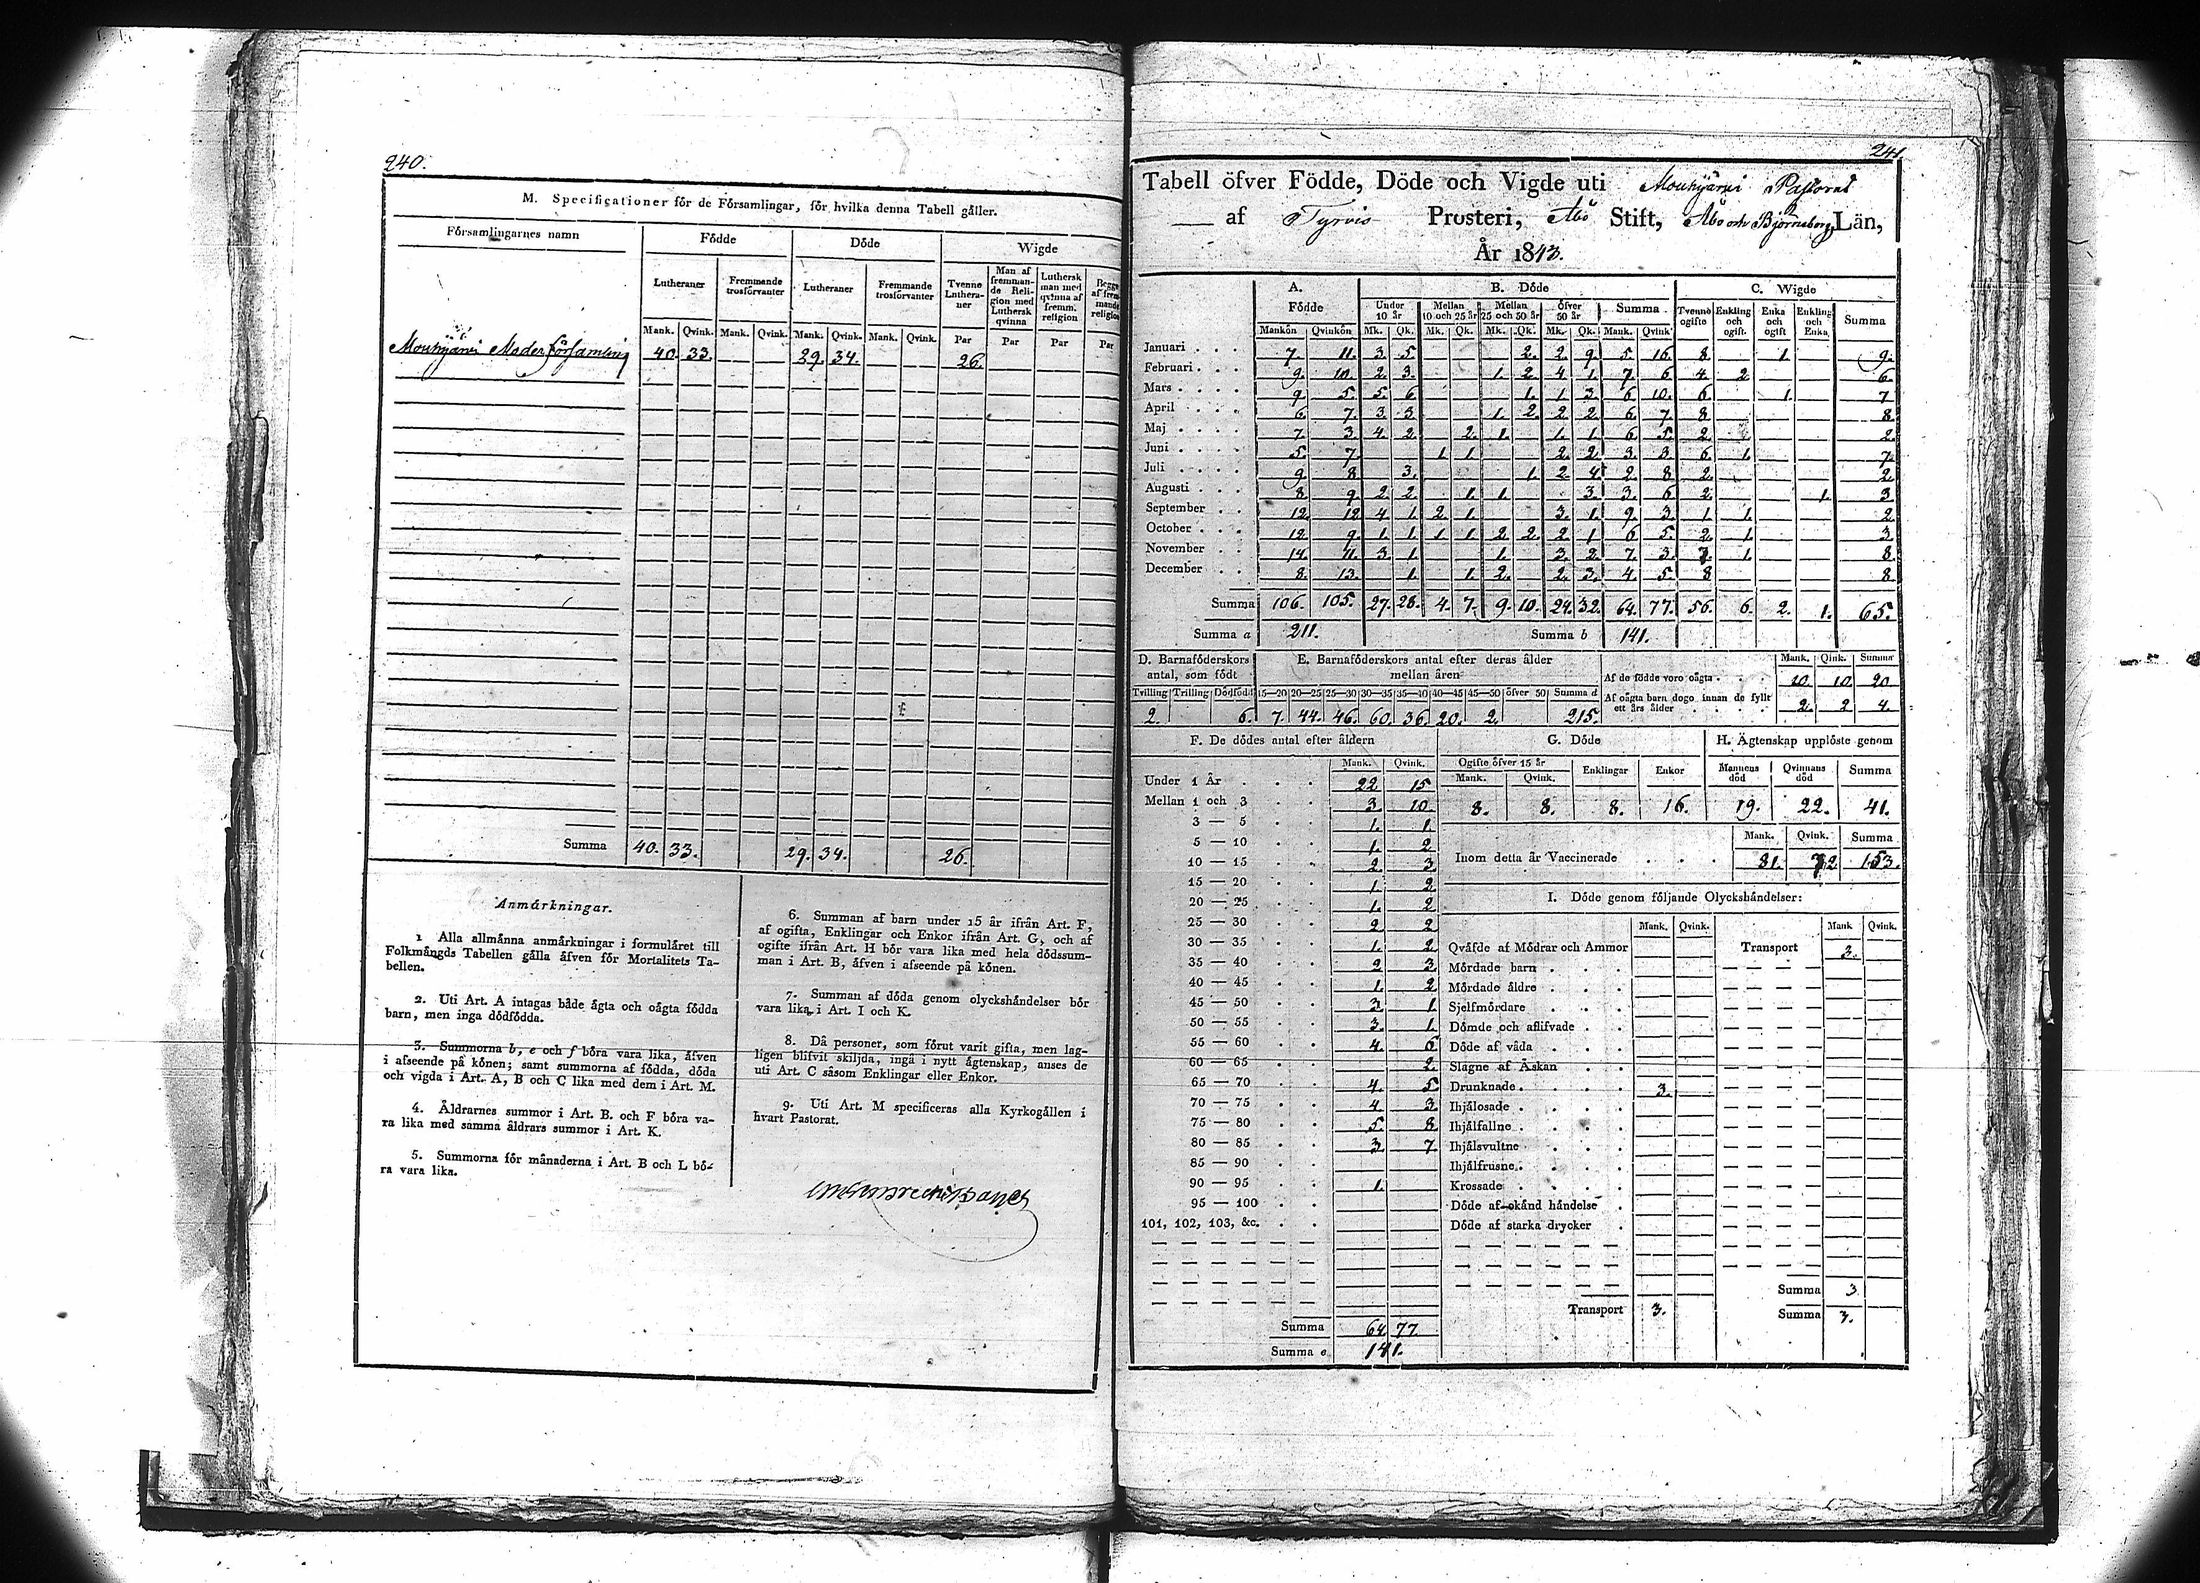 240.
M. Specificationer för de Församlingar, för hvilka denna Tabell gäller.
Församlingarnes namn | Födde | Döde | Wigde
Lutheraner | Fremmande trosförvanter | Lutheraner | Fremmande trosförvanter | Tvenne Lutheraner | Man af fremmande Religion med Luthersk qvinna | Luthersk man med qvinna af fremm. religion | Begge af fremmande religion
Mank. Qvink. Mank. Qvink. Mank. Qvink. Mank. Qvink. Par Par Par Par
Mouhijärvi Moderförsamling 40. 33. 29. 34. 26.
Summa 40. 33. 29. 34. 26.
Anmärkningar.
1 Alla allmänna anmärkningar i formuläret till
Folkmängds Tabellen gälla äfven för Mortalitets Ta-
bellen.
2. Uti Art. A intagas både ägta och oägta födda
barn, men inga dödfödda.
3. Summorna b, e och f böra vara lika, äfven
i afseende på könen; samt summorna af födda, döda
och vigda i Art. A, B och C lika med dem i Art. M.
4. Äldrarnes summor i Art. B. och F böra va-
ra lika med samma äldrars summor i Art. K.
5. Summorna för månaderna i Art. B och L bö-
ra vara lika.
6. Summan af barn under 15 år ifrån Art. F,
af ogifta, Enklingar och Enkor ifrån Art. G, och af
ogifte ifrån Art. H bör vara lika med hela dödssum-
man i Art. B, äfven i afseende på könen.
7. Summan af döda genom olyckshändelser bör
vara lika i Art. I och K.
8. Då personer, som förut varit gifta, men lag-
ligen blifvit skiljda, ingå i nytt ägtenskap, anses de
uti Art. C såsom Enklingar eller Enkor.
9. Uti Art. M specificeras alla Kyrkogällen i
hvart Pastorat.
241.
Tabell öfver Födde, Döde och Vigde uti Mouhijärvi Pastorat
af Tyrvis Prosteri, Åbo Stift, Åbo och Björneborgs Län,
År 1843.
A. Födde | B. Döde | C. Wigde
Under 10 år | Mellan 10 och 25 år | Mellan 25 och 50 år | öfver 50 år | Summa | Tvenne ogifte | Enkling och ogift. | Enka och ogift | Enkling och Enka | Summa
Mankön Qvinkön Mk. Qk. Mk. Qk. Mk. Qk. Mk. Qk. Mank. Qvink
Januari 7. 11. 3. 5. 2. 2. 9. 5. 16. 8. 1. 9.
Februari 9. 10. 2. 3. 1. 2. 4. 1. 7. 6. 4. 2. 6.
Mars 9. 5. 5. 6. 1. 1. 3. 6. 10. 6. 1. 7
April 6. 7. 3. 3. 1. 2. 2. 2. 6. 7. 8. 8.
Maj 7. 3. 4. 2. 2. 1. 1. 1. 6. 5. 2. 2.
Juni 5. 7. 1. 1. 2. 2. 3. 3. 6. 1. 7.
Juli 9. 8. 3. 1. 2. 4. 2. 8. 2. 2.
Augusti 8. 9. 2. 2. 1. 1. 3. 3. 6. 2. 1. 3
September 12. 12 4. 1. 2. 1. 3. 1. 9. 3. 1. 1. 2.
October 12. 9. 1. 1. 1. 1. 2. 2. 2. 1. 6. 5. 2. 1. 3.
November 14. 11. 3. 1. 1. 3. 2. 7. 3. 7. 1. 8.
December 8. 13. 1. 1. 2. 2. 3. 4. 5. 8 8.
Summa 106. 105. 27. 28. 4. 7. 9. 10. 24. 32. 64. 77. 56. 6. 2. 1. 65.
Summa a 211. Summa b 141.
D. Barnaföderskors antal, som födt
Tvilling Trilling Dödfödd
2. 6.
E. Barnaföderskors antal efter deras ålder mellan åren
15—20 20—25 25—30 30—35 35—40 40—45 45—50 öfver 50 Summa d
7. 44. 46. 60. 36. 20. 2. 215.
Mank. Qink. Summa
Af de födde voro oägta 10. 10. 20
Af oägta barn dogo innan de fyllt ett års ålder 2. 2 4.
F. De dödes antal efter åldern
Mank. Qvink.
Under 1 År 22 15
Mellan 1 och 3 3 10
3 — 5 1. 1.
5 — 10 1. 2
10 — 15 2 3
15 — 20 1. 2
20 — 25 1. 2
25 — 30 2 2
30 — 35 1. 2
35 — 40 2 3
40 — 45 1. 2
45 — 50 3 1.
50 — 55 3 1.
55 — 60 4 6
60 — 65 2.
65 — 70 4. 5.
70 — 75 4 3
75 — 80 5. 8
80 — 85 3 7
85 — 90
90 — 95 1.
95 — 100
101, 102, 103, &c.
Summa 64 77.
Summa e 141.
G. Döde
Ogifte öfver 15 år | Enklingar | Enkor
Mank. Qvink.
8. 8. 8. 16.
H. Ägtenskap upplöste genom
Mannens död | Qvinnans död | Summa
19. 22. 41.
Mank. Qvink. Summa
Inom detta år Vaccinerade 81. 72 153.
I. Döde genom följande Olyckshändelser:
Mank. Qvink. Transport Mank Qvink.
3.
Qväfde af Mödrar och Ammor
Mördade barn
Mördade äldre
Sjelfmördare
Dömde och aflifvade
Döde af våda
Slagne af Åskan
Drunknade 3.
Ihjälosade
Ihjälfallne
Ihjälsvultne
Ihjälfrusne
Krossade
Döde af okänd händelse
Döde af starka drycker
Summa 3
Transport 3.
Summa 3.